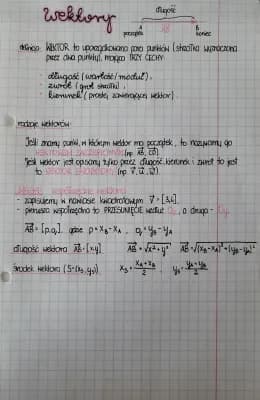 Wektory
długość
A B
początek koniec
definicja: WEKTOR to uporządkowana para punktów (strzałka wyznaczona
przez dwa punkty), mająca TRZY CECHY:
- długość (wartość/moduł),
- zwrot (grot strzałki),
- kierunek (prosta zawierająca wektor).
rodzaje wektorów:
Jeśli znamy punkt, w którym wektor ma początek, to nazywamy go
WEKTOREM ZACZEPIONYM (np. AB, CD).
Jeśli wektor jest opisany tylko przez długość, kierunek i zwrot to jest
to WEKTOR SWOBODNY (np. v, u, w).
współrzędne wektora
- zapisujemy w nawiasie kwadratowym v = [3,4].
- pierwsza współrzędna to PRZESUNIĘCIE wzdłuż Ox, a druga - Oy.
AB = [p,q], gdzie p = xB - xA, q = yB - yA
długość wektora AB = [x,y] AB = √x² + y² AB = √(xB - xA)² + (yB - yA)²
środek wektora (S = (xs, ys)) xs = (xA + xB)/2, ys = (yA + yB)/2